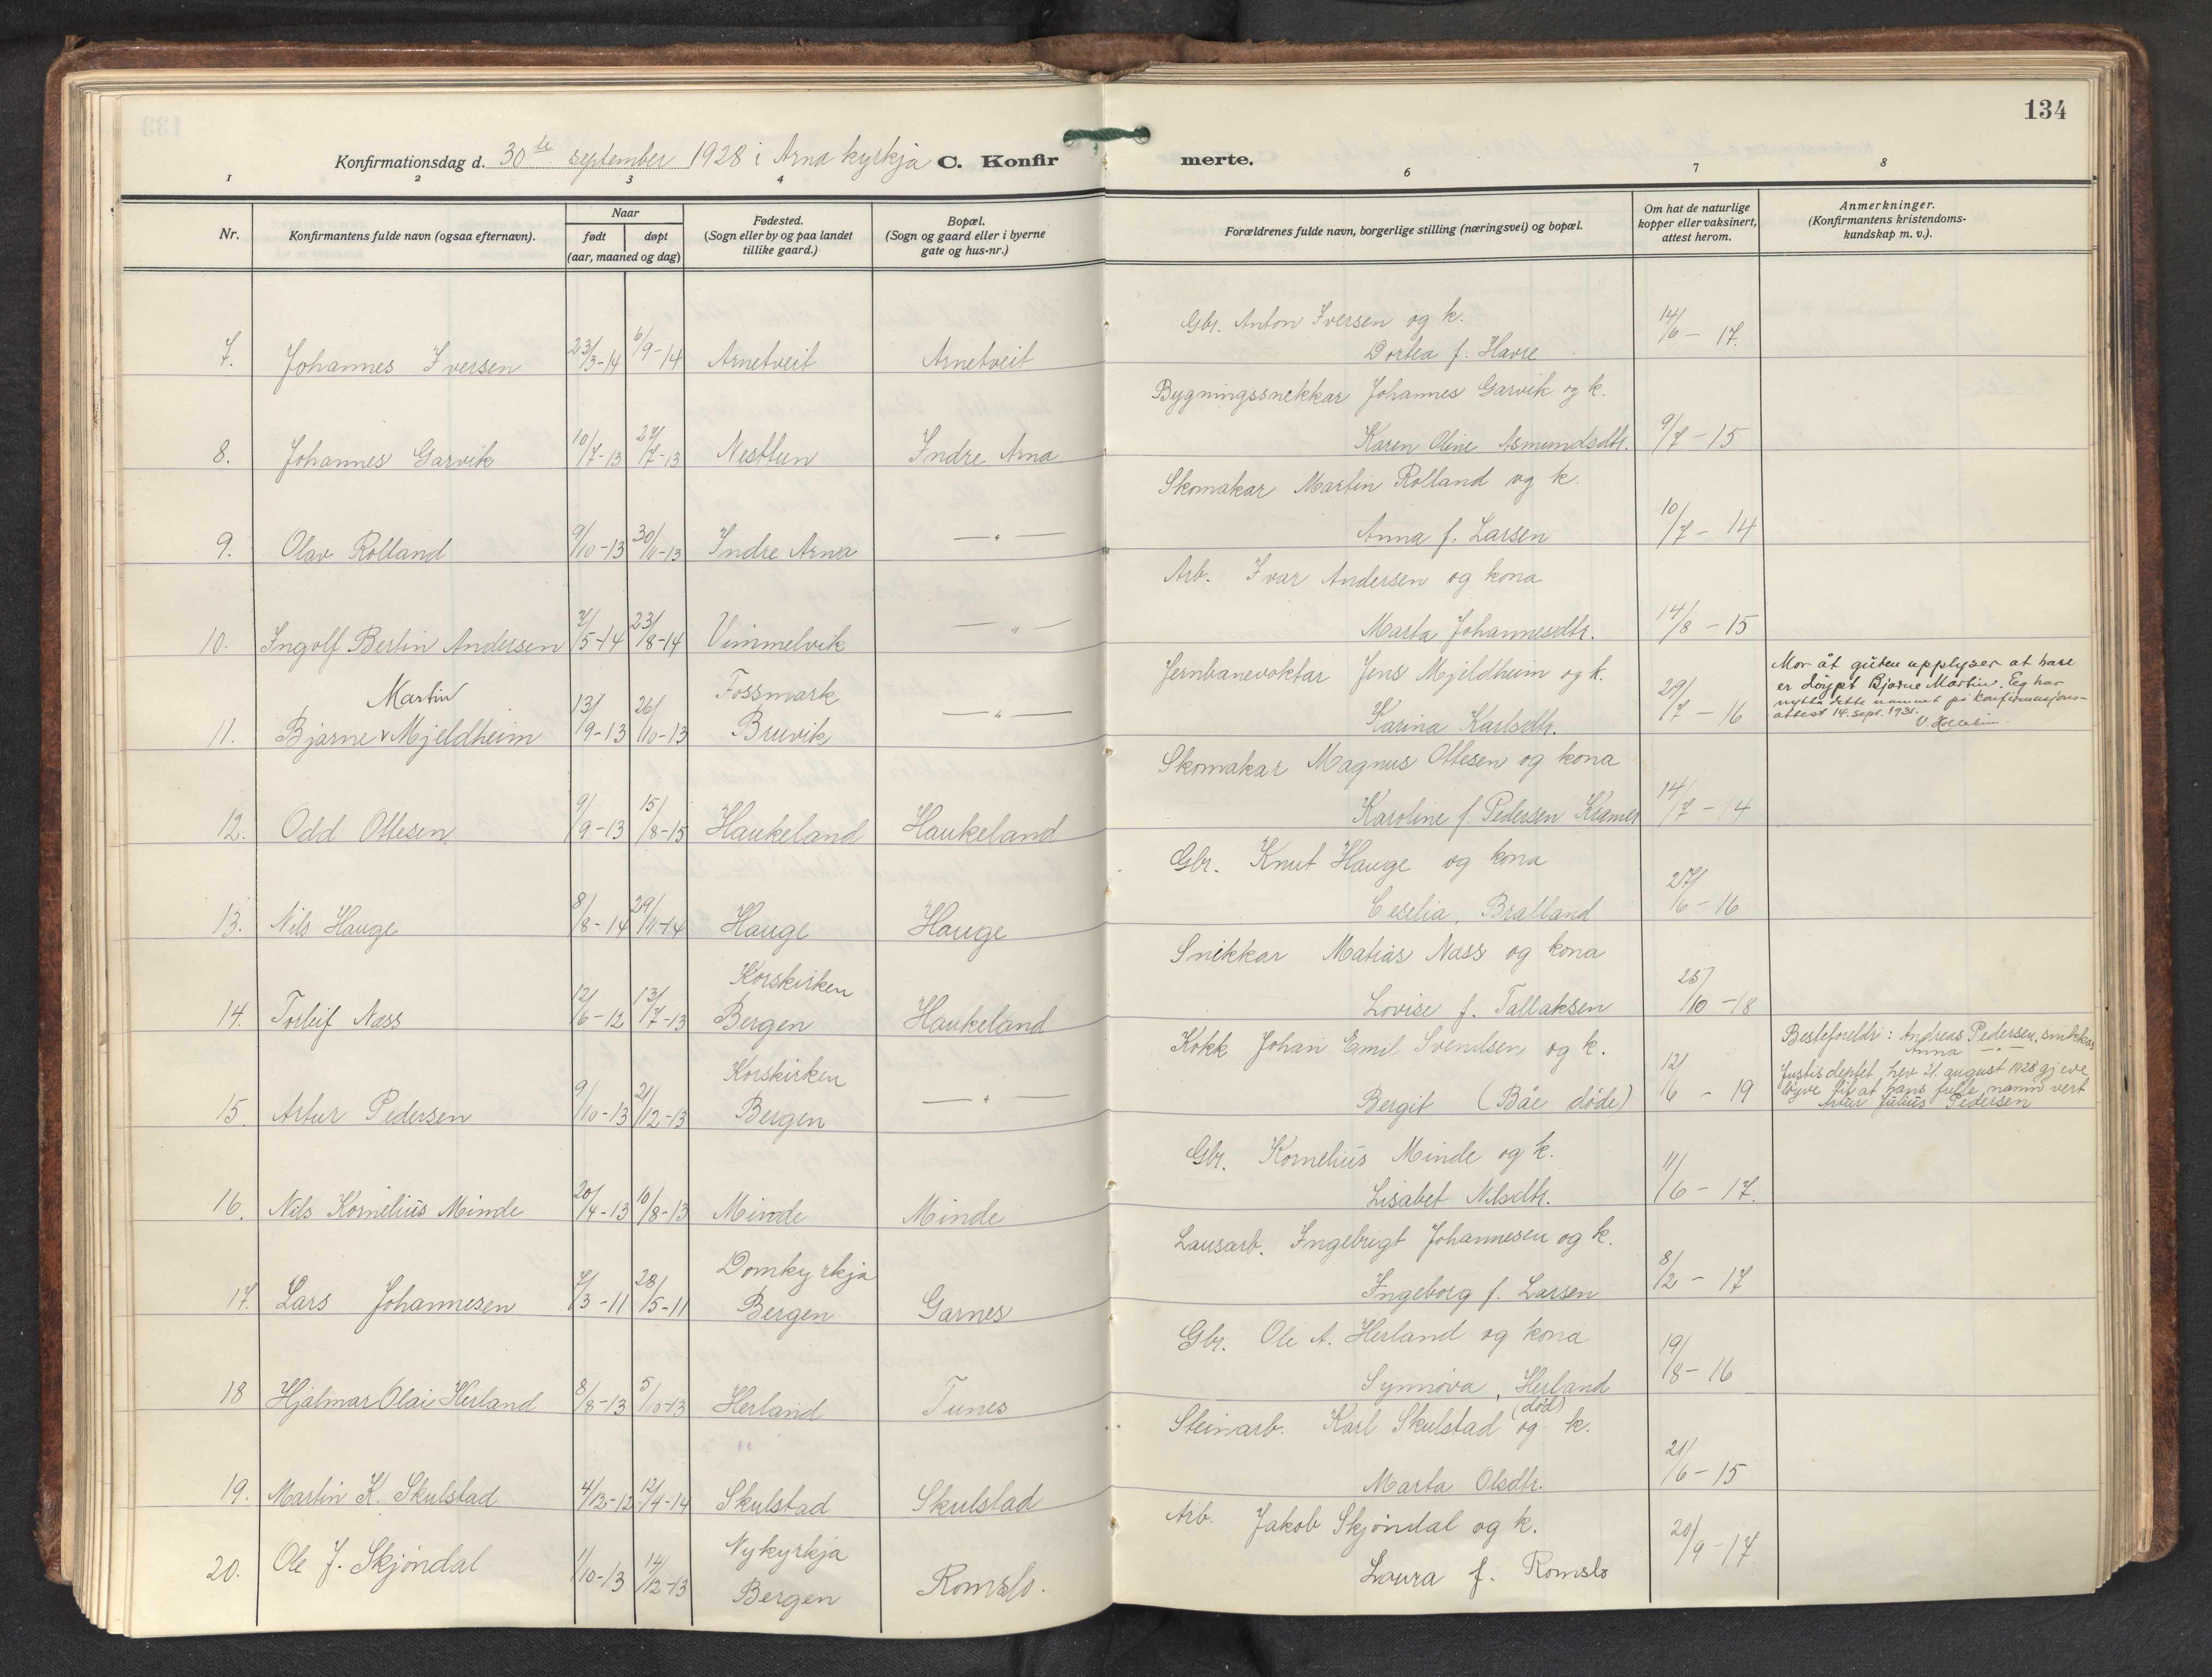 134
Konfirmationsdag d. 30te september 1928 i Arna kyrkja C. Konfir merte.
1 2 3 4 6 7 8
Nr.
Konfirmantens fulde navn (ogsaa efternavn).
Naar
født døpt
(aar, maaned og dag)
Fødested.
(Sogn eller by og paa landet
tillike gaard.)
Bopæl.
(Sogn og gaard eller i byerne
gate og hus-nr.)
Forældrenes fulde navn, borgerlige stilling (næringsvei) og bopæl.
Om hat de naturlige
kopper eller vaksinert,
attest herom.
Anmerkninger.
(Konfirmantens kristendoms-
kundskap m. v.).
Gbr. Anton Iversen og k.
7. Johannes Iversen 23/3-14 6/9-14 Arnetveit Arnetveit Dortea f. Havre 14/6 - 17.
Bygningssnekkar Johannes Garvik og k.
8. Johannes Garvik 10/7-13 27/7-13 Nesttun Indre Arna Karen Oline Asmundsdtr. 9/7 - 15
Skomakar Martin Rolland og k.
9. Olav Rolland 9/10-13 30/11-13 Indre Arna — " — Anna f. Larsen 10/7 - 14
Arb. Ivar Andersen og kona
10. Ingolf Bertin Andersen 7/5-14 23/8-14 Vimmelvik — " — Marta Johannesdtr. 14/8 - 15
Martin Fossmark Jernbanevoktar Jens Mjeldheim og k.
11. Bjarne v Mjeldheim 13/9-13 26/10-13 Bruvik — " — Karina Karlsdtr. 29/7 - 16
Mor åt guten upplyser at hare
er døypt Bjarne Martin. Eg har
nytta dette namnet på konfirmasjons-
attest 14. sept. 1931.
Skomakar Magnus Ottesen og kona
12. Odd Ottesen 9/9-13 15/8-15 Haukeland Haukeland Karoline f Pedersen Kramer 14/7 - 14
Gbr. Knut Hauge og kona
13. Nils Hauge 8/8-14 29/11-14 Hauge Hauge Ceselia, Bratland 27/6 - 16
Korskirken Snekkar Matias Nass og kona
14. Torleif Nass 12/6-12 13/7-13 Bergen Haukeland Lovise f. Tallaksen 25/10 - 18
Korskirken Kokk Johan Emil Svendsen og k.
15. Artur Pedersen 9/10-13 21/12-13 Bergen — " — Bergit (Båe døde) 12/6 - 19
Besteforeldri: Andreas Pedersen, snikkar
Anna — " —
Justisdeptet. hev 21. august 1928 gjeve
løyve til at hans fulle namn vert
Artur Julius Pedersen
Gbr. Kornelius Minde og k.
16. Nils Kornelius Minde 20/4-13 10/8-13 Minde Minde Lisabet Nilsdtr. 11/6 - 17.
Domkyrkja Lausarb. Ingebrigt Johannesen og k.
17. Lars Johannesen 7/3-11 28/5-11 Bergen Garnes Ingeborg f. Larsen 8/2 - 17
Gbr. Ole A. Herland og kona
18 Hjalmar Olai Herland 8/8-13 5/10-13 Herland Tunes Synnøva, Herland 19/8 - 16
(død)
Steinarb. Karl Skulstad og k.
19. Martin K. Skulstad 4/12-12 12/4-14 Skulstad Skulstad Marta Olsdtr. 21/6 - 15
Nykyrkja Arb. Jakob Skjøndal og k.
20. Ole J. Skjøndal 1/10-13 14/12-13 Bergen Romslo. Laura f. Romslo 20/9 - 17